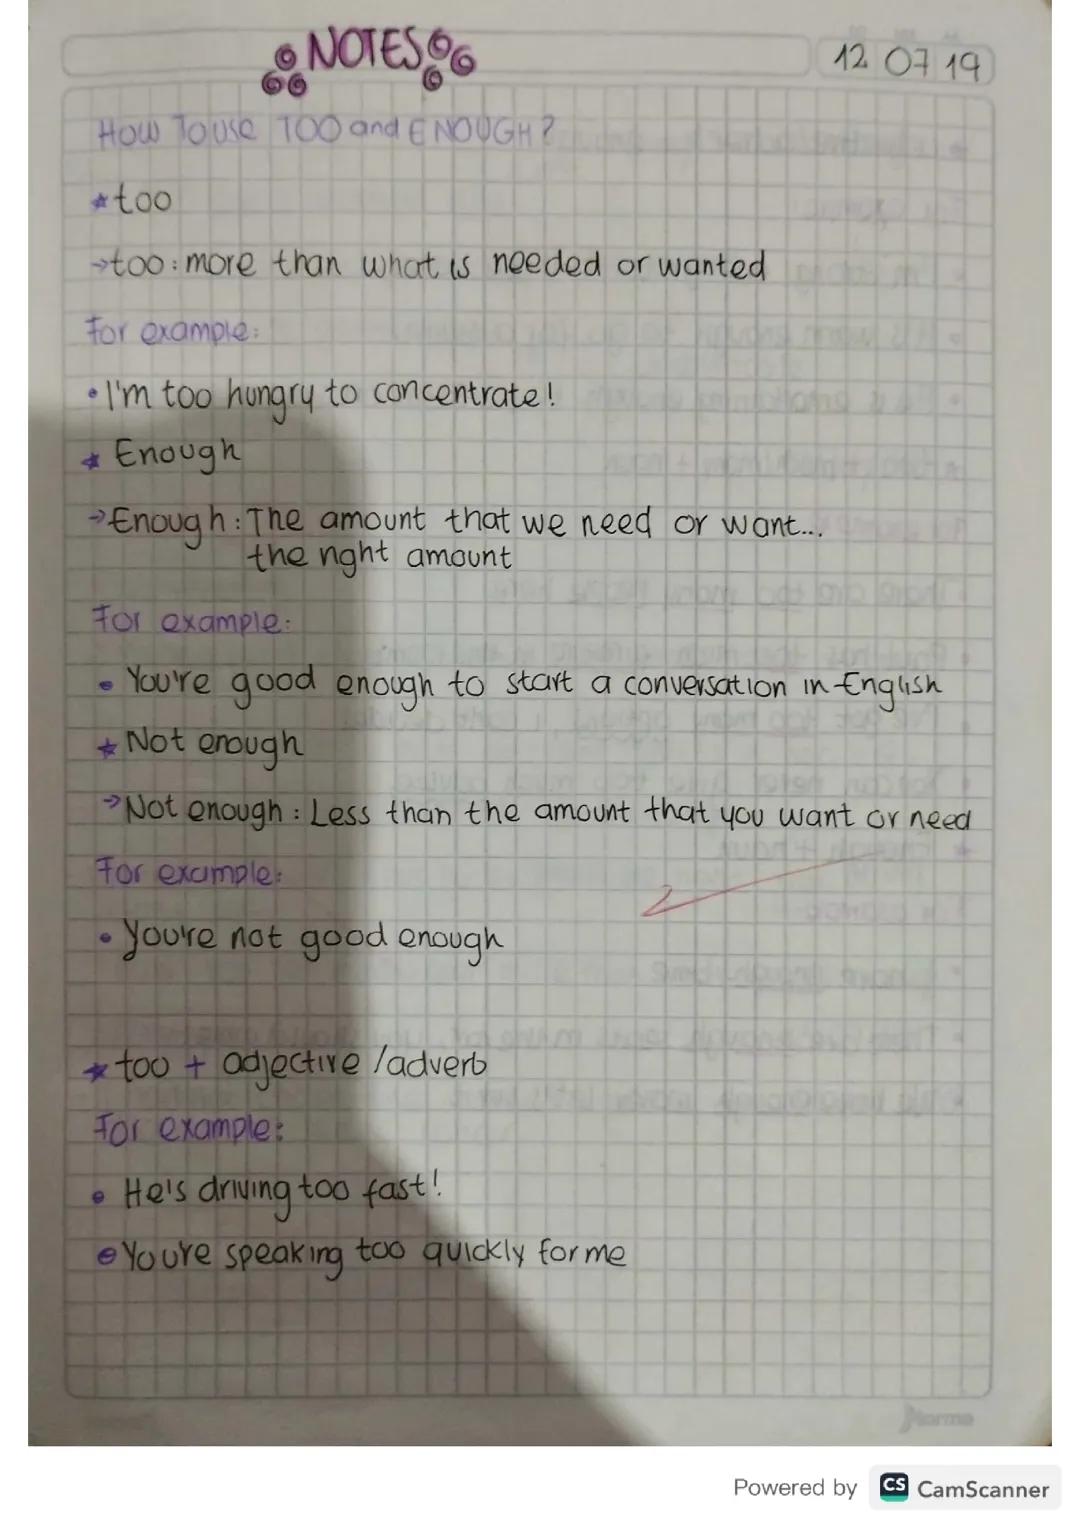 NOTES
12 07 19
HOW TO USE TOO and ENOUGH?
* too
→too: more than what is needed or wanted
For example:
• I'm too hungry to concentrate!
* Enough
→Enough: The amount that we need or want...
the right amount
For example:
• You're good enough to start a conversation in English
* Not enough
→Not enough: Less than the amount that you want or need
For example:
• You're not good enough
* too + adjective /adverb
For example:
• He's driving too fast!
• You're speaking too quickly for me
Norma
Powered by CS CamScanner